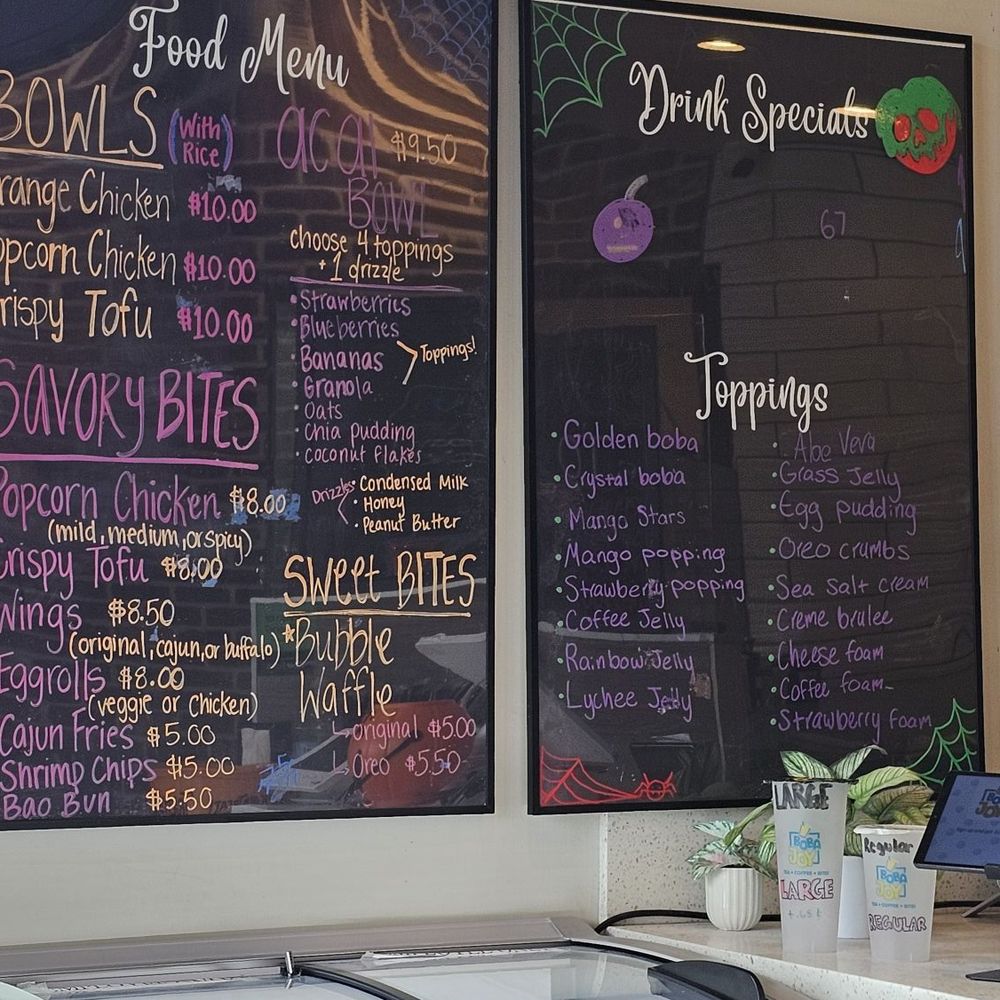 Food Menu
BOWLS (With Rice)
range Chicken $10.00
opcorn Chicken $10.00
rispy Tofu $10.00
SAVORY BITES
Popcorn Chicken $8.00
(mild, medium, or spicy)
Crispy Tofu $8.00
Wings $8.50
(original, cajun, or buffalo)
Eggrolls $8.00
(veggie or chicken)
Cajun Fries $5.00
Shrimp Chips $5.00
Bao Bun $5.50
acai $9.50
BOWL
choose 4 toppings
+ 1 drizzle
Strawberries
Blueberries
Bananas
Toppings!
Granola
Oats
Chia pudding
coconut flakes
Drizzles
Condensed Milk
Honey
Peanut Butter
SWeet BITES
Bubble
Waffle
original $5.00
Oreo $5.50
Drink Specials
67
Toppings
Golden boba
Crystal boba
Mango Stars
Mango popping
Strawberry popping
Coffee Jelly
Rainbow Jelly
Lychee Jelly
Aloe Vera
Grass Jelly
Egg pudding
Oreo crumbs
Sea salt cream
Creme brulee
Cheese foam
Coffee foam
Strawberry foam
LARGE
BOBA
JOY
TEA • COFFEE • BITES
LARGE
Regular
BOBA
JOY
TEA • COFFEE • BITES
REGULAR